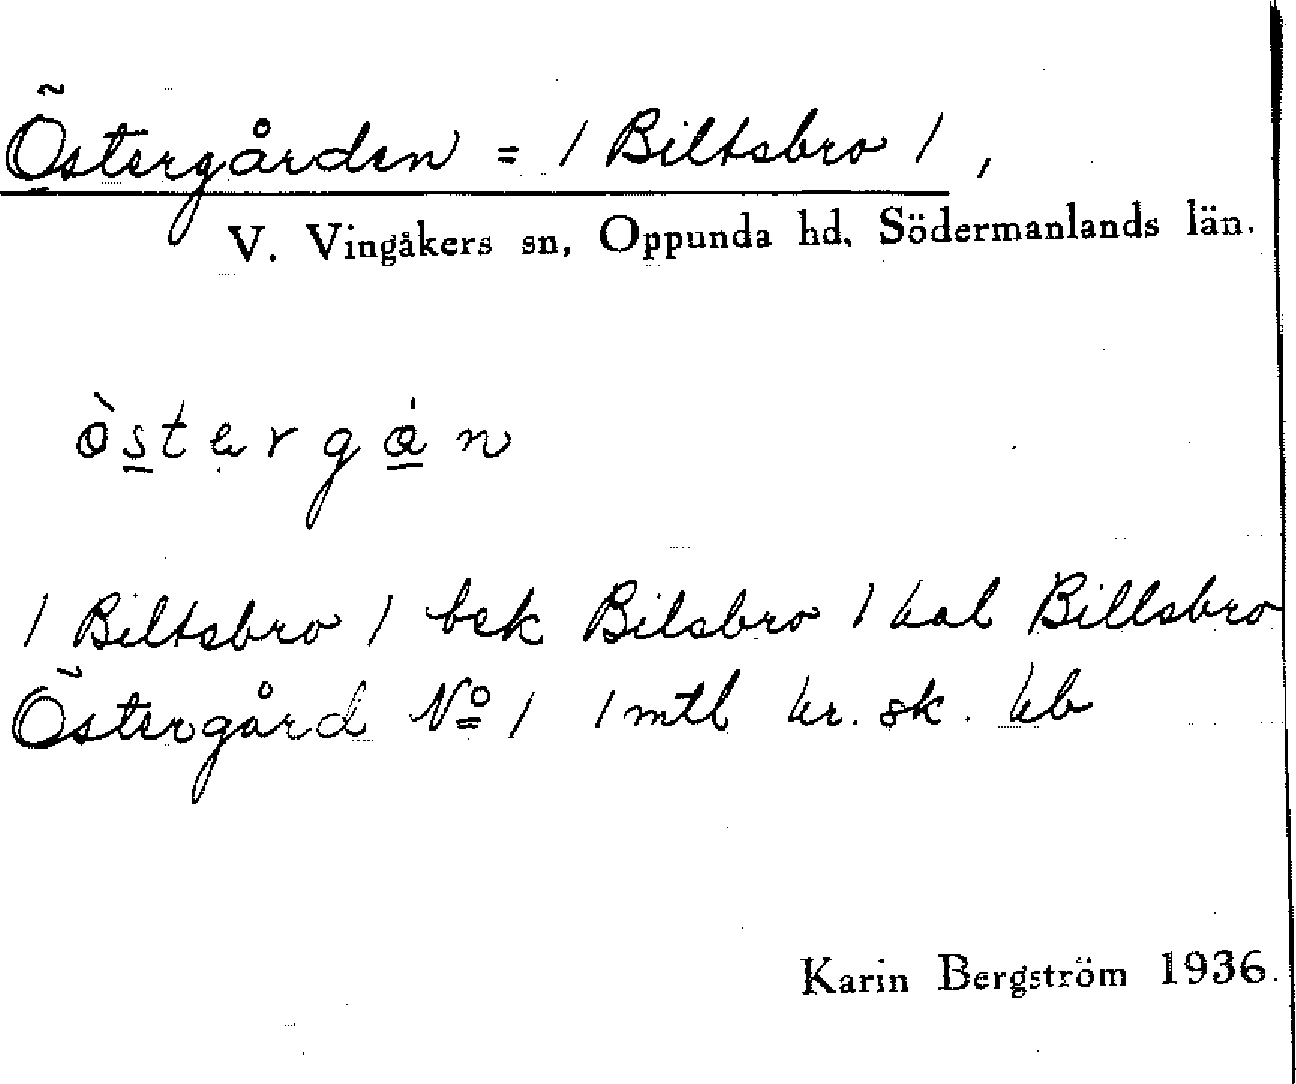 Östergården = / Biltsbro / ,
V. Vingåkers sn, Oppunda hd, Södermanlands län.
östergán
/ Biltsbro / bek Bilsbro / hal Billsbro
Östergård No 1 1 mtl kr. sk. hb
Karin Bergström 1936.